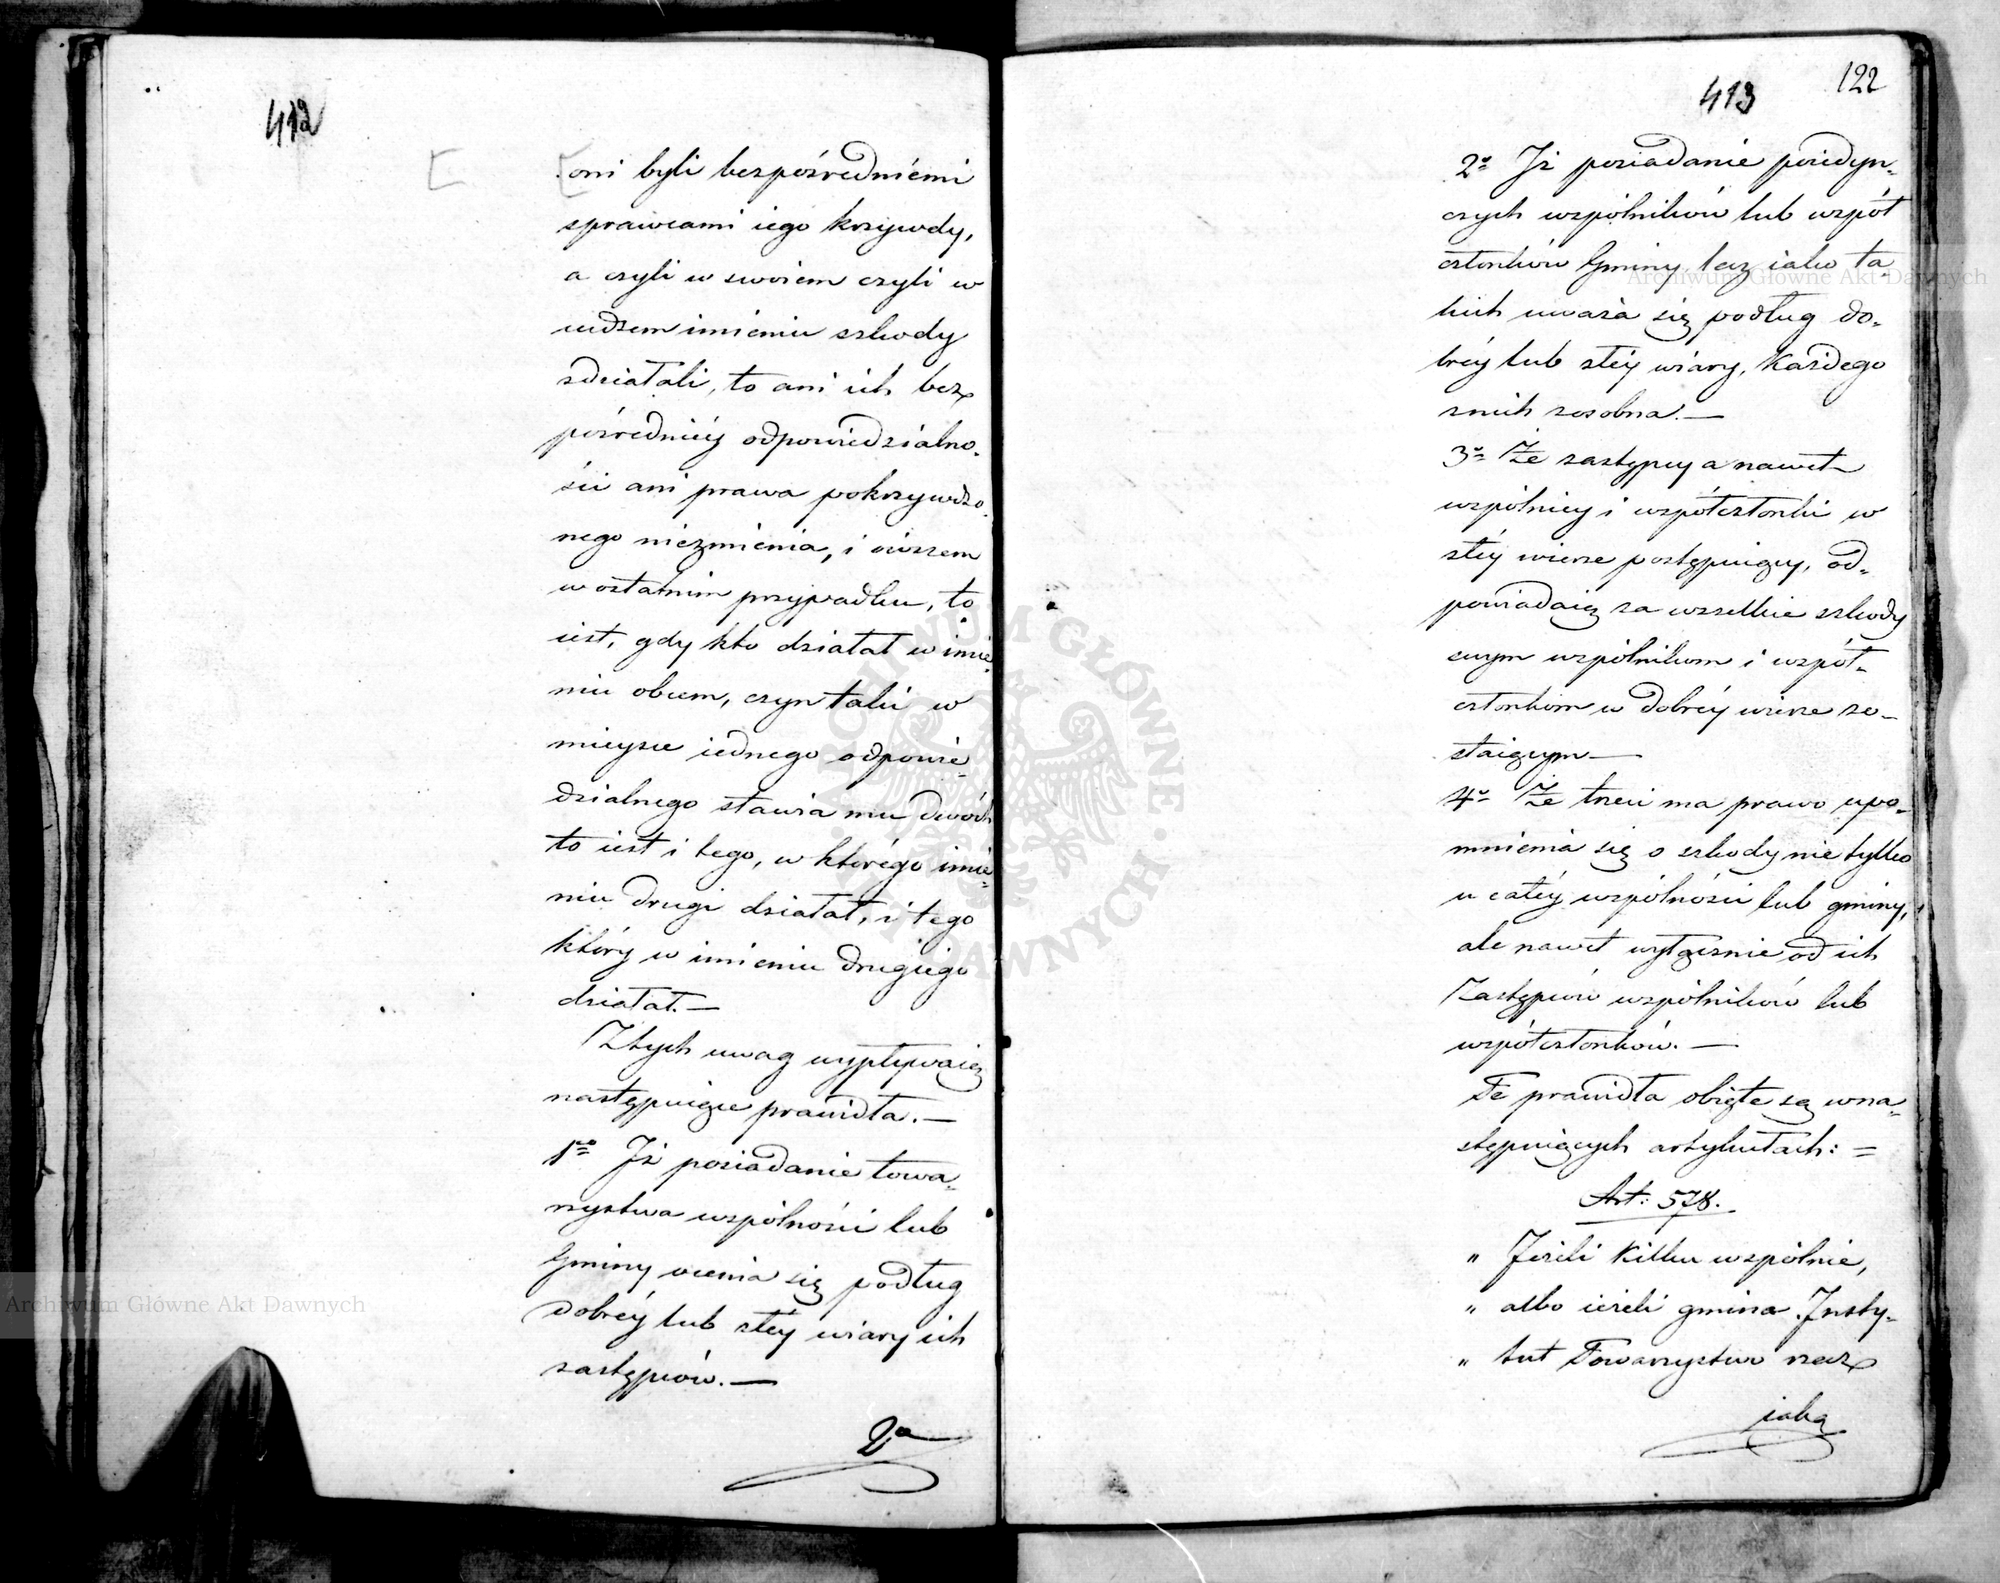 412
oni byli bezpośredniemi
sprawcami iego krzywdy,
a czyli w swoiem czyli w
cudzem imieniu szkody
zdziałali, to ani ich bez
pośredniéy odpowiedzialno-
ści ani prawa pokrzywdzo-
nego niezmienia, i owszem
w ostatnim przypadku, to
iest, gdy kto działał w imie-
niu obcem, czyn taki w
mieysce iednego odpowie-
dzialnego stawia mu dwóch
to iest i tego, w którégo imie-
niu drugi działał, i tego
który w imieniu drugiego
działał.—
Ztych uwag wypływaią
następuiące prawidła.—
1mo Iż posiadanie towa-
rzystwa wspólności lub
Gminy ocenia się podług
dobréy lub złéy wiary ich
zastępców.—
2o
413 122
2o Iż posiadanie poiedyn-
czych wspólników lub współ
członków Gminy, lecz iako ta
kich uważa się podług do-
bréy lub złéy wiary, każdego
znich zosobna.—
3o Że zastępcy a nawet
wspólnicy i współczłonki w
złéy wierze postępuiący, od-
powiadaią za wszelkie szkody
swym wspólnikom i współ-
członkom w dobréy wierze zo-
staiącym—
4o Że trzeci ma prawo upo-
mnienia się o szkody nie tylko
u całéy wspólności lub gminy,
ale nawet wyłącznie od ich
Zastępców wspólników lub
współczłonków.—
Te prawidła obięte są wna-
stępuiących artykułach: =
Art: 578.
„ Ieżeli kilku wspólnie,
„ albo ieżeli gmina Insty-
„ tut Towarzystwo rzecz
iaką
Archiwum Główne Akt Dawnych
Archiwum Główne Akt Dawnych
ARCHIWUM GŁÓWNE AKT DAWNYCH